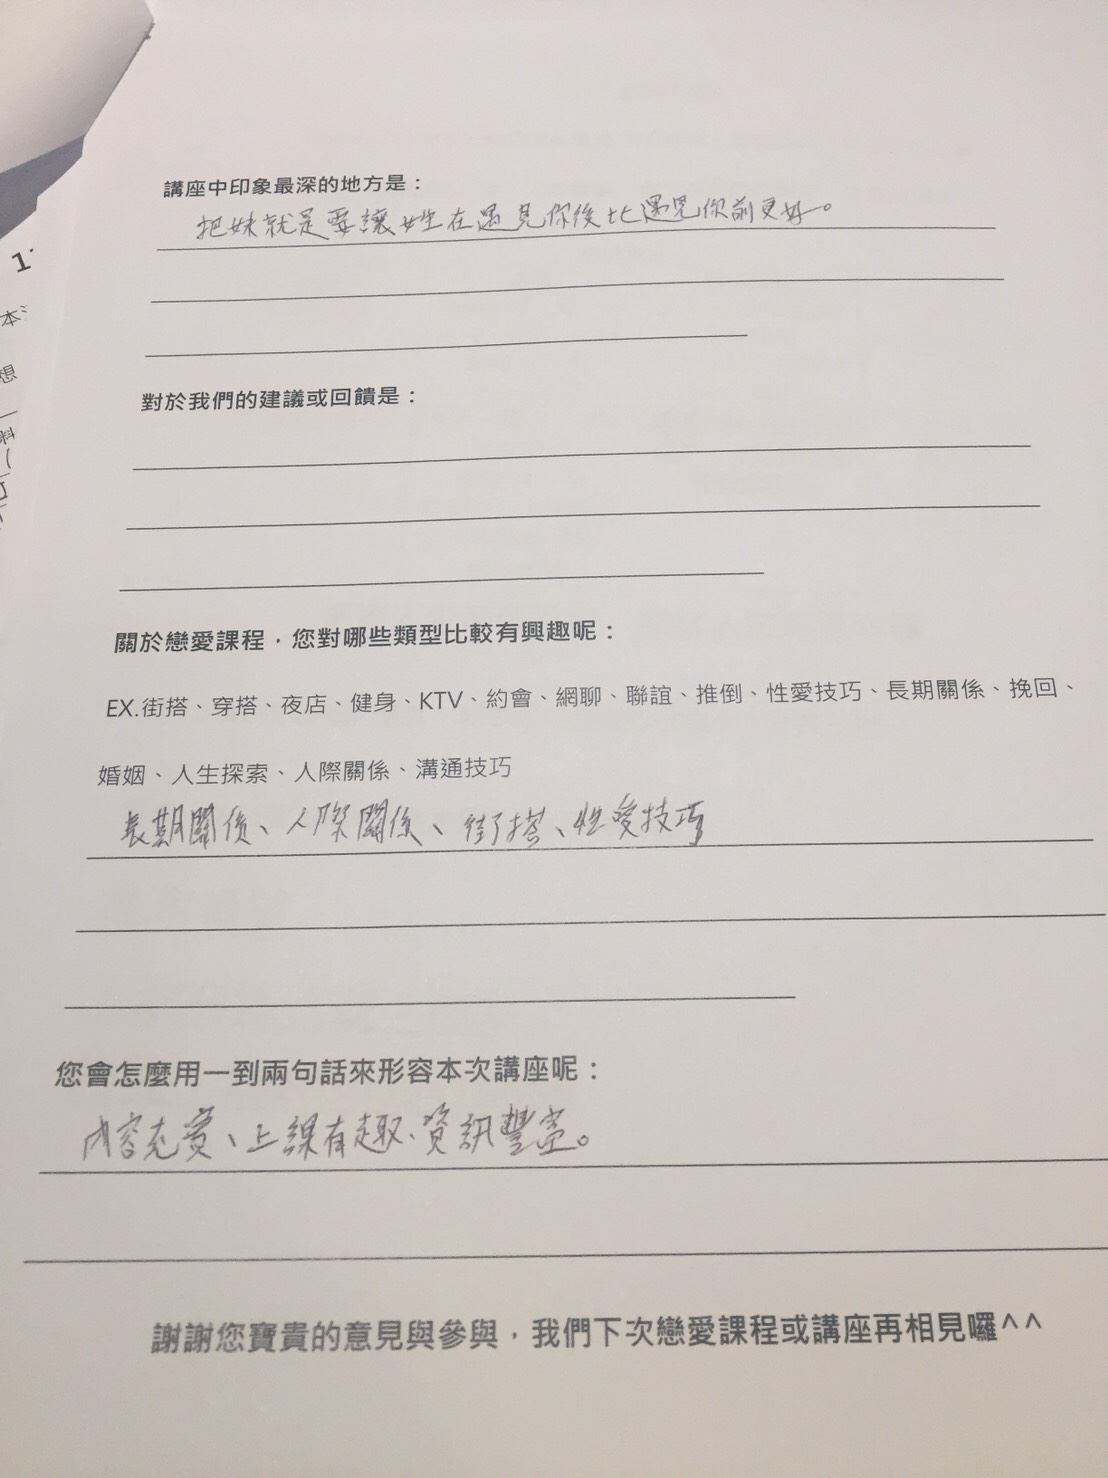 講座中印象最深的地方是：
把妹就是要讓女生在遇見你後比遇見你前更好。
對於我們的建議或回饋是：
關於戀愛課程，您對哪些類型比較有興趣呢：
EX.街搭、穿搭、夜店、健身、KTV、約會、網聊、聯誼、推倒、性愛技巧、長期關係、挽回、
婚姻、人生探索、人際關係、溝通技巧
長期關係、人際關係、街搭、性愛技巧
您會怎麼用一到兩句話來形容本次講座呢：
內容充實、上課有趣、資訊豐富。
謝謝您寶貴的意見與參與，我們下次戀愛課程或講座再相見囉^^